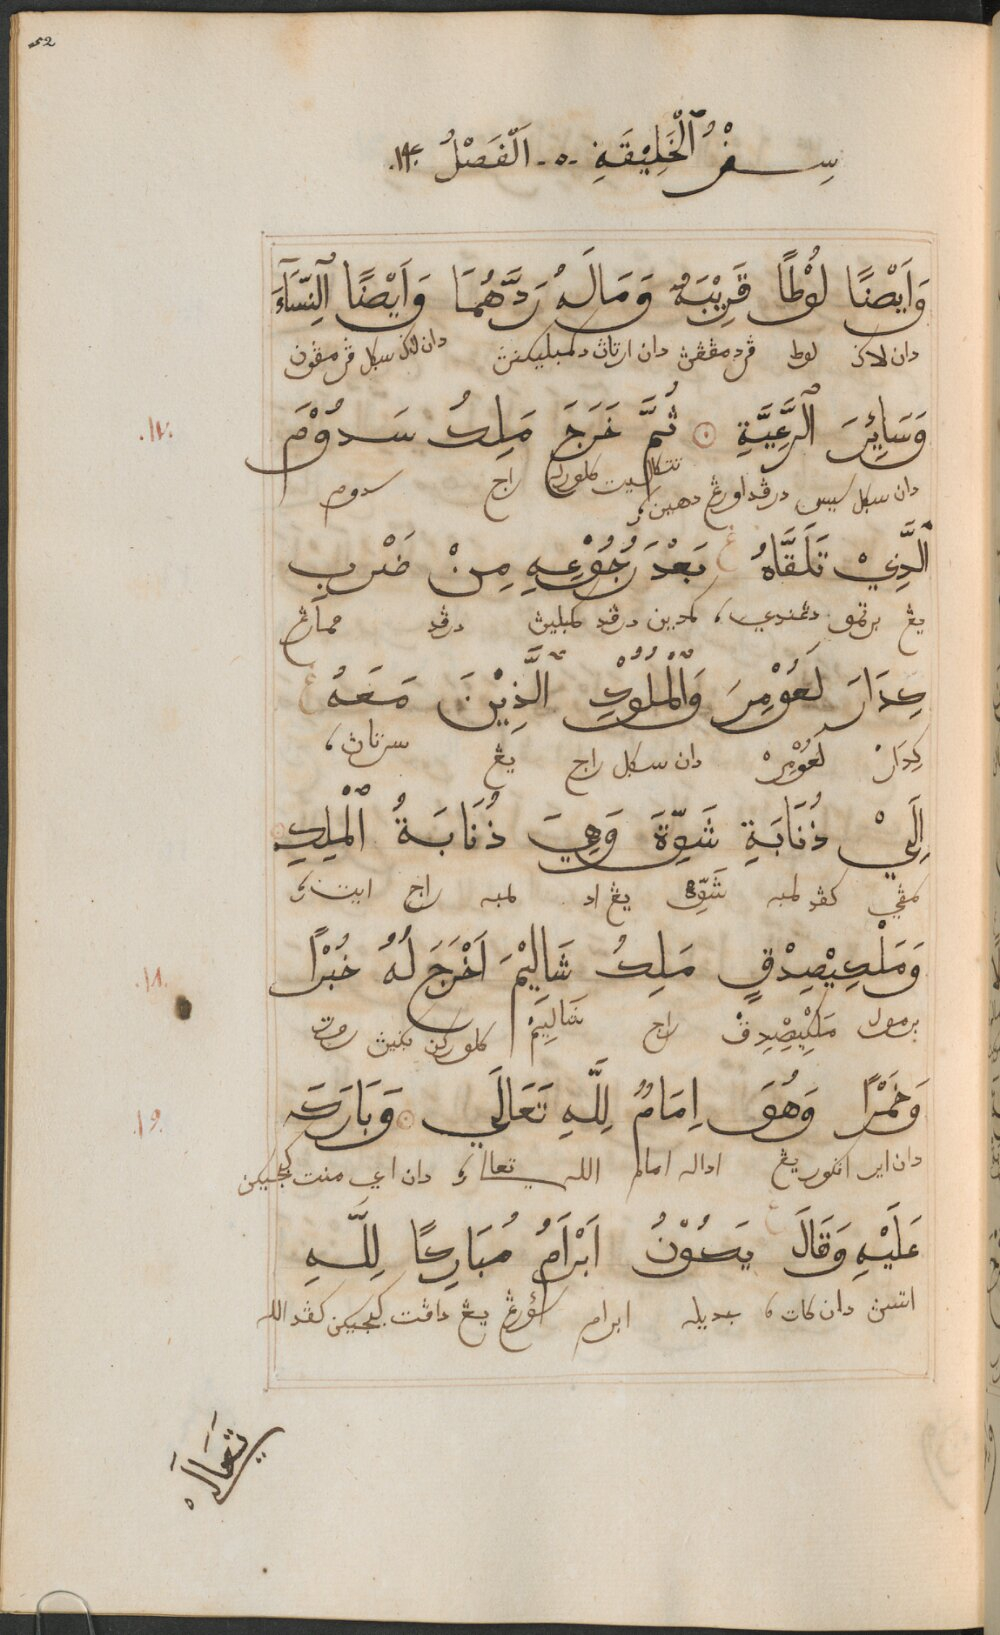 52
سِفْرُ ٱلْخَلِيْقَةِ -٥- اَلْفَصْلُ ١٤.
وَاَيْضًا لُوْطًا قَرِيْبَهُ وَمَالَهُ رَدَّهُمَا وَاَيْضًا ٱلنِّسَآءَ
دان لاݢ لوط دان ارتاڽ دکمبليکنڽ دان لاݢ سکل ڤرمڤون
وَسَائِرَ ٱلرَّعِيَّةِ ۞ ثُمَّ خَرَجَ مَلِكُ سَدُوْمَ
.١٧.
دان سکل درڤد اورڠ کلورله راج سدوم
ٱلَّذِيْ تَلَقَّاهُ بَعْدَ رُجُوْعِهِ مِنْ ضَرْبِ
يڠ برتمو دڠندي، کمدين درڤد کمبليڽ درڤد ممارڠ
كِدَارَ لَعُوْمِرَ وَٱلْمُلُوْكِ ٱلَّذِيْنَ مَعَهُ
كِدَارَ لَعُوْمِرْ دان سکل راج يڠ سرتاڽ،
اِلَيْ ذُنَابَةِ شَوِّةَ وَهِيَ ذُنَابَةُ ٱلْمَلِكِ
کڤد لمبه شَوِّهْ يڠ اد لمبه راج ايت
وَمَلْكِيْصِدْقٍ مَلِكُ شَالِيْمَ اَخْرَجَ لَهُ خُبْزًا
.١٨.
برمول مَلْكِيْصِدِقْ راج شَالِيَمْ کلورکن بڬيڽ روت
وَخَمْرًا وَهُوَ اِمَامٌ لِلَّهِ تَعَالَي ۞ وَبَارَكَ
.١٩.
دان اير اڠڬور يڠ اداله امام الله تعالى دان اي منت
عَلَيْهِ وَقَالَ يَكُوْنُ اَبْرَامُ مُبَارِكًا لِلَّهِ
اتسڽ دان کات، جديله ابرام سؤرڠ يڠ داڤت کڤد الله
تَعَالَي